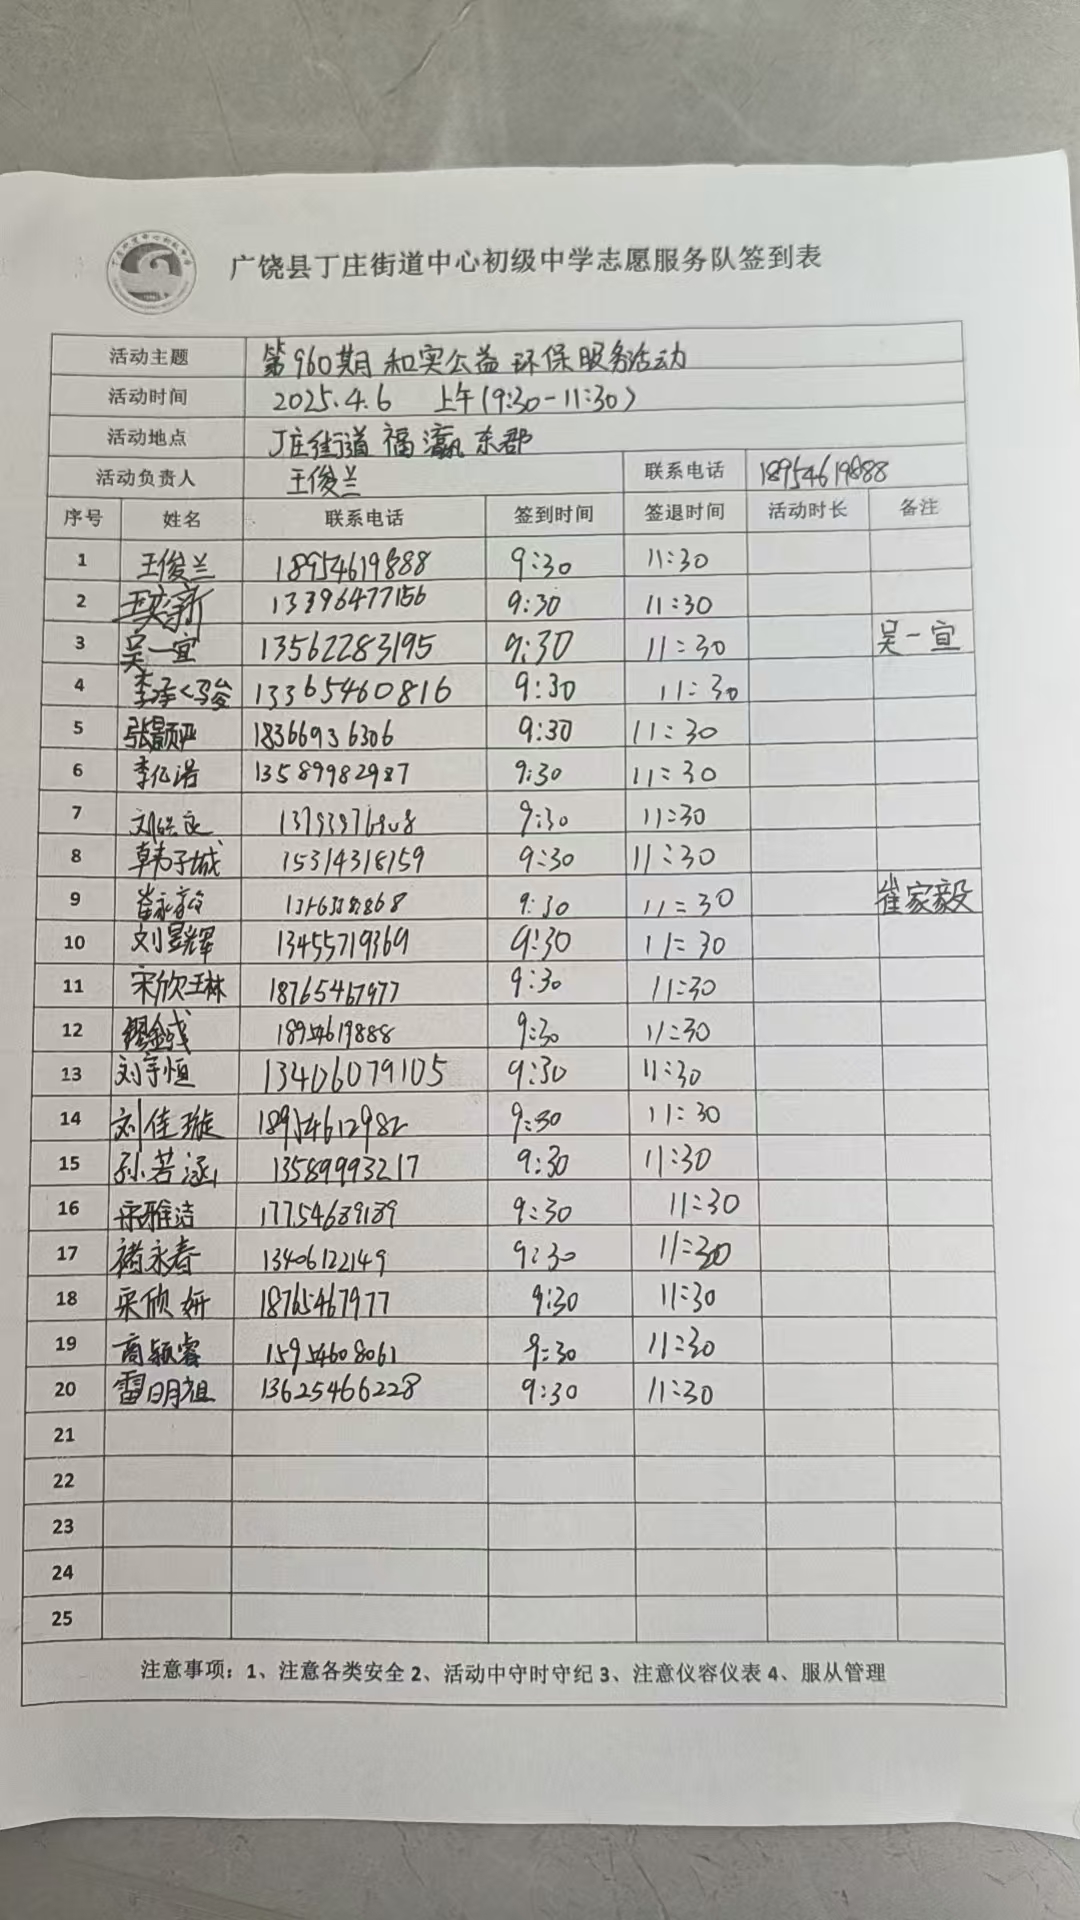 广饶县丁庄街道中心初级中学志愿服务队签到表
活动主题 第960期 和实公益 环保服务活动
活动时间 2025.4.6 上午(9:30-11:30)
活动地点 丁庄街道 福瀛东郡
活动负责人 王俊兰 联系电话 18954619888
序号 姓名 联系电话 签到时间 签退时间 活动时长 备注
1 王俊兰 18954619888 9:30 11:30
2 王奕新 13396477156 9:30 11:30
3 吴一宜 13562283195 9:30 11:30 吴一宜
4 13365460816 9:30 11:30
5 张颢严 18366936306 9:30 11:30
6 李亿浩 13589982987 9:30 11:30
7 9:30 11:30
8 韩子城 15314318159 9:30 11:30
9 崔家毅 9:30 11:30 崔家毅
10 刘昱辉 13455719369 9:30 11:30
11 宋欣琳 18765467977 9:30 11:30
12 18954619888 9:30 11:30
13 刘宇恒 13406079105 9:30 11:30
14 刘佳璇 18954612982 9:30 11:30
15 孙若涵 13589993217 9:30 11:30
16 宋雅洁 17754689189 9:30 11:30
17 褚永春 13406122149 9:30 11:30
18 宋欣妍 18765467977 9:30 11:30
19 商颖睿 15954608061 9:30 11:30
20 雷明祖 13625466228 9:30 11:30
21
22
23
24
25
注意事项：1、注意各类安全 2、活动中守时守纪 3、注意仪容仪表 4、服从管理